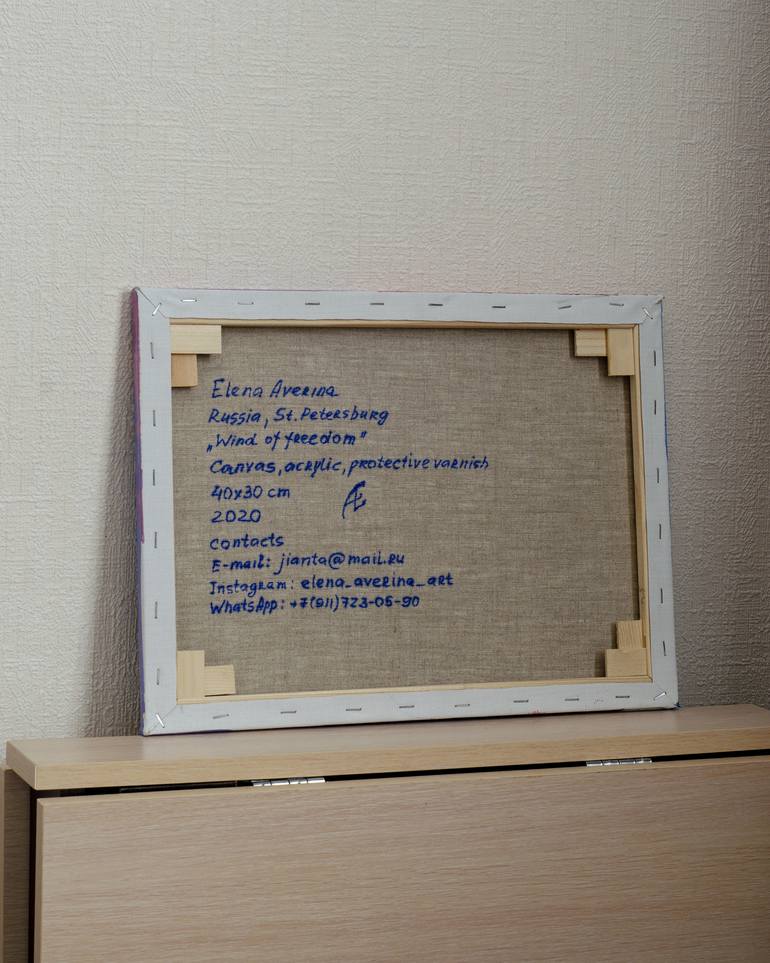 Elena Averina
Russia, St. Petersburg
„Wind of freedom"
Canvas, acrylic, protective varnish
40x30 cm
2020
contacts
E-mail: jianta@mail.ru
Instagram: elena_averina_art
WhatsApp: +7(911)723-05-90